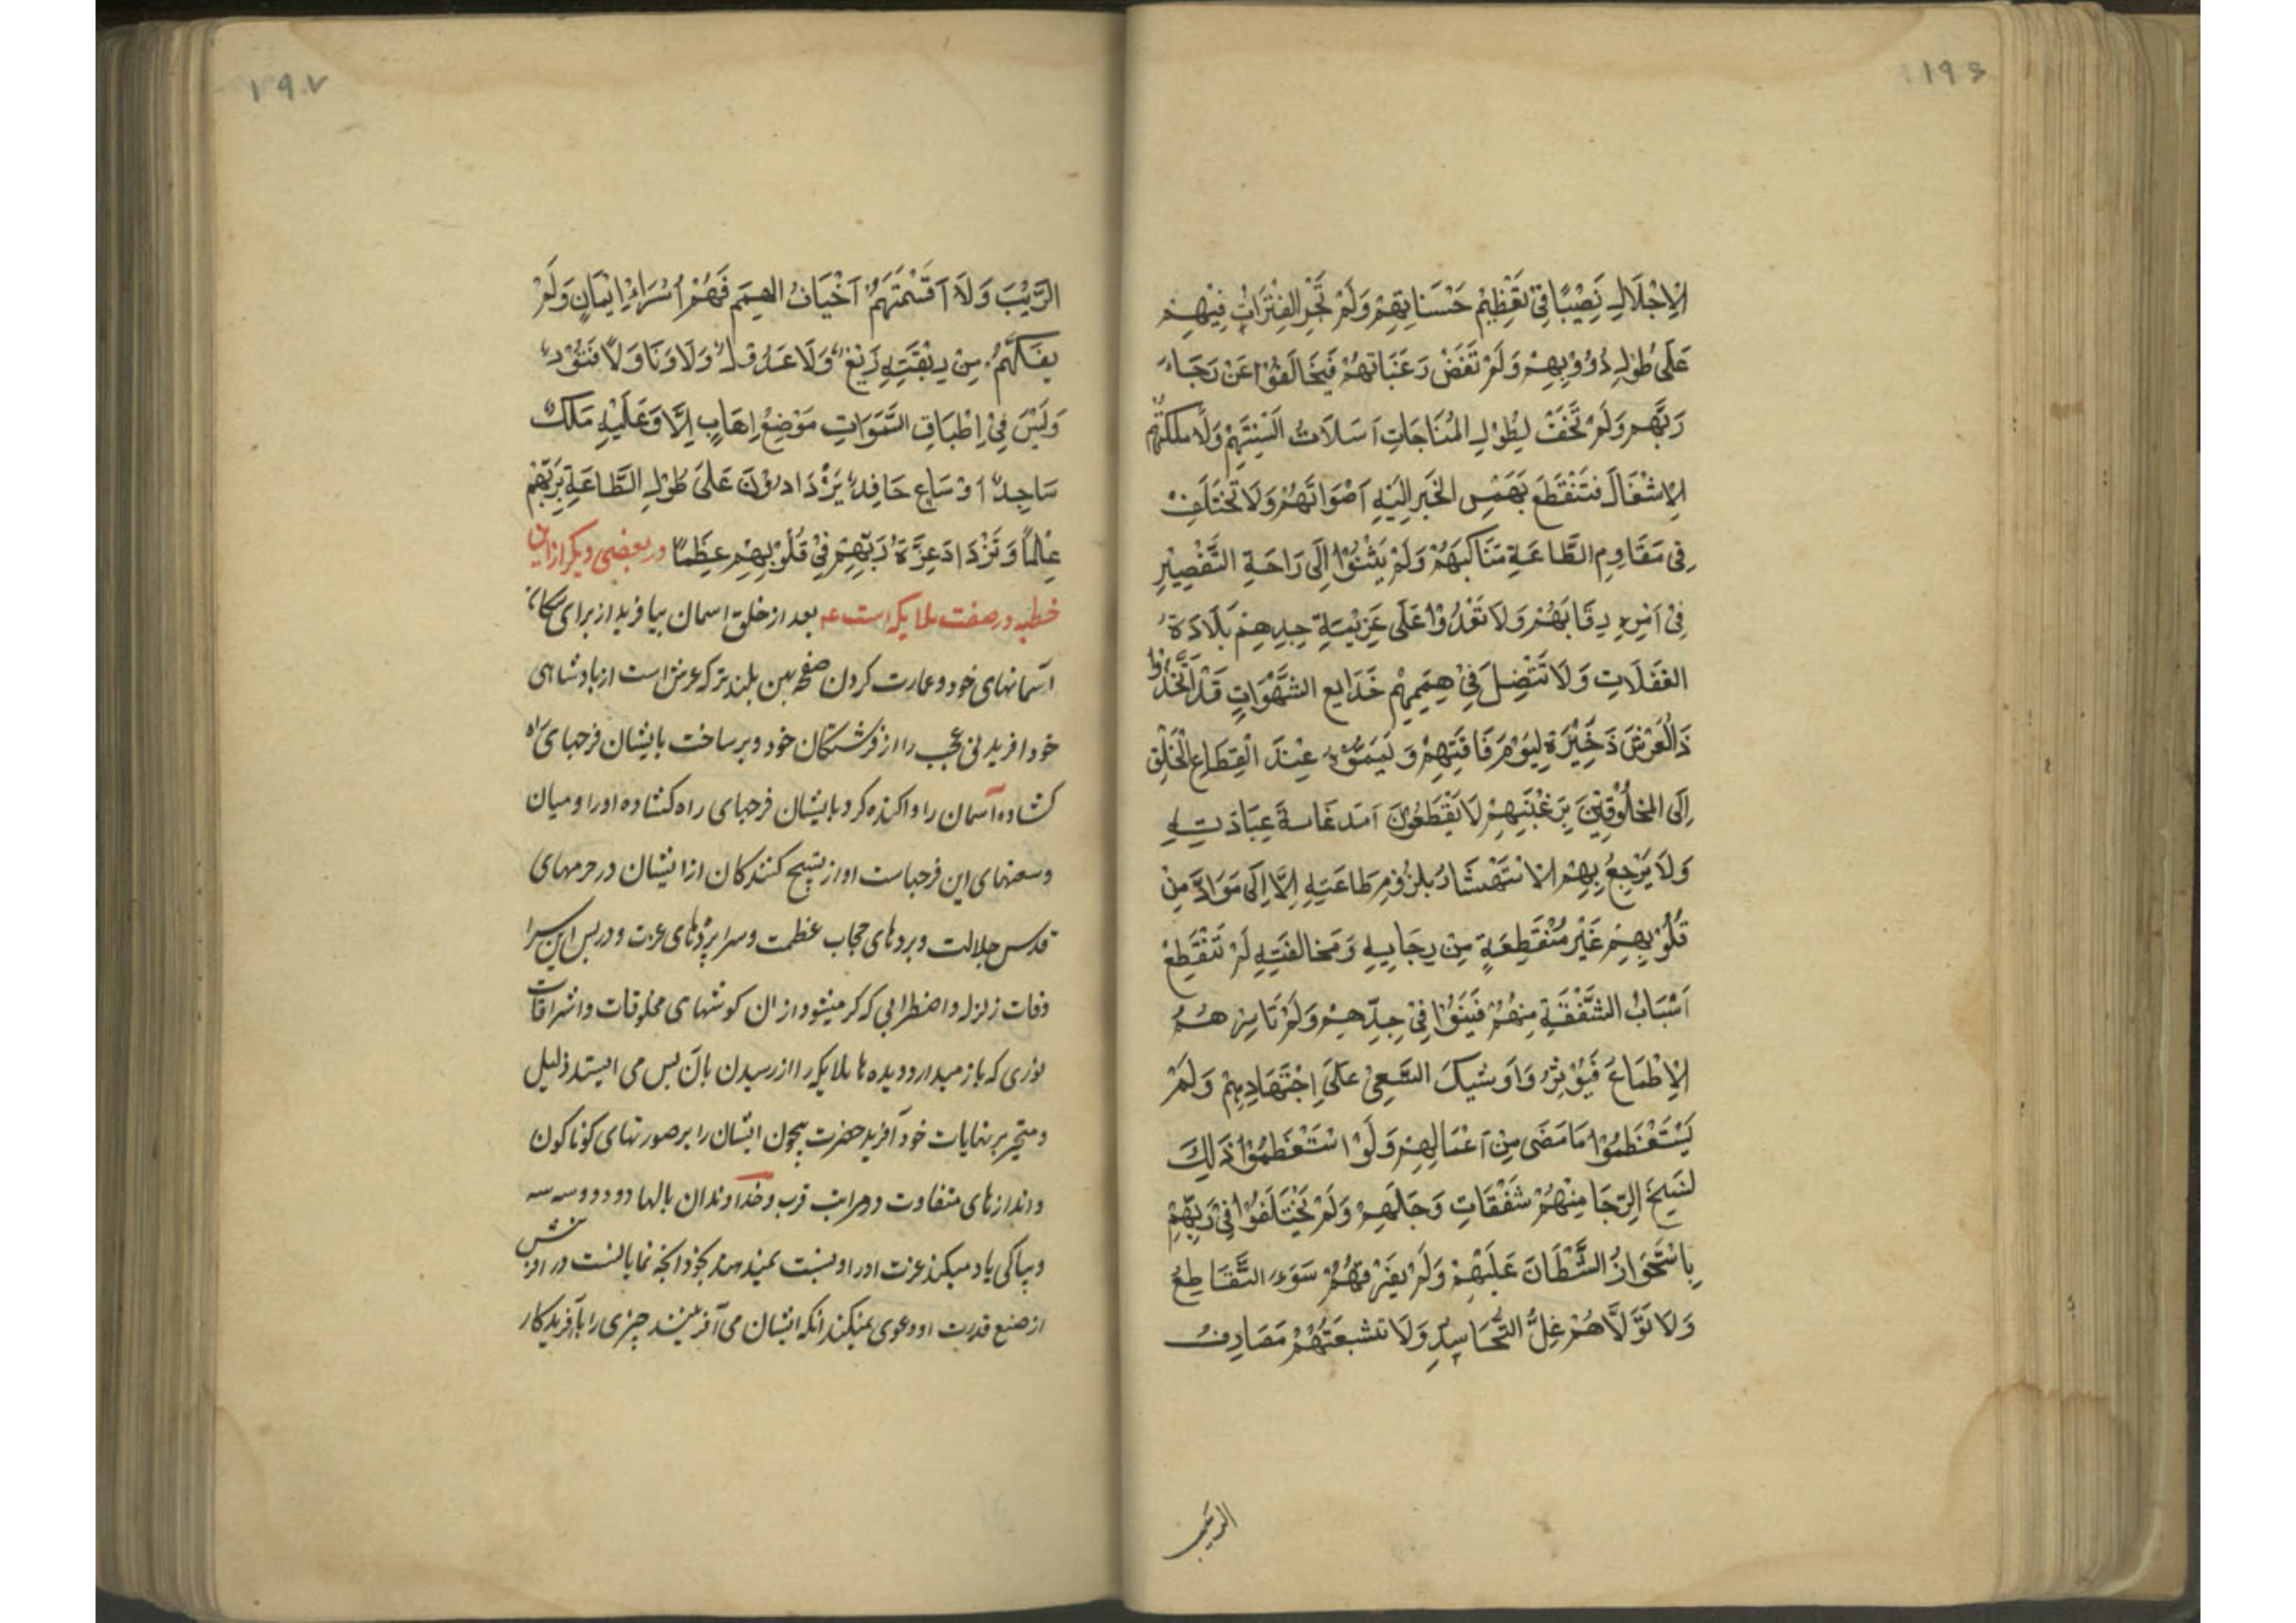 ۱۹۶
الْاِجْلَالِ نَصِیْبًا فِیْ تَعْظِیْمِ حَسَنَاتِهِمْ وَلَمْ تَجْرِ الْفَتَرَاتُ فِیْهِمْ
عَلَی طُوْلِ دُؤُوْبِهِمْ وَلَمْ تَغَضْ رَغَبَاتُهُمْ فَیُخَالِفُوْا عَنْ رَجَاءِ
رَبِّهِمْ وَلَمْ تَجُفَّ لِطُوْلِ الْمُنَاجَاتِ اَسَلَاتُ اَلْسِنَتِهِمْ وَلَا مَلَكَتْهُمُ
الْاِشْغَالَ فَتَنْقَطِعَ بَهَمْسِ الْخَبَرِ اِلَیْهِ اَصْوَاتُهُمْ وَلَا تَخْتَلِفْ
فِی مَقَاوِمِ الطَّاعَةِ مَنَاكِبُهُمْ وَلَمْ یَثْنُوْا اِلَی رَاحَةِ التَّقْصِیْرِ
فِیْ اَمْرِهِ رِقَابَهُمْ وَلَا تَعْدُوْا عَلَی عَزِیْمَةِ جِدِهِمْ بَلَادَةُ
الْغَفَلَاتِ وَلَا تَنْتَضِلَ فِیْ هِمَمِهِمْ خَدَایِع الشَّهَوَاتِ قَدْ اتَّخَذُوْا
ذَالْعَرْشِ ذَخِیْرَةً لِیَوْمِ فَاقَتِهِمْ وَ یَمَّمُوْهُ عِنْدَ انْقِطَاعِ الْخَلْقِ
اِلَی الْمَخْلُوْقِیْنَ بِرَغْبَتِهِمْ لَا یَقْطَعُوْنَ اَمَدَ غَایَةِ عِبَادَتِهِ
وَلَا یَرْجِعُ بِهِمْ الْاِسْتِهْتَارُ بِلُزُوْمِ طَاعَتِهِ اِلَّا اِلَی مَوَادَّ مِنْ
قُلُوْبِهِمْ غَیْرِ مُنْقَطِعَةٍ مِنْ رِجَایِهِ وَ مَخَالَفَتِهِ لَمْ تَنْقَطِعْ
اَسْبَابُ الشَّفَقَةِ مِنْهُمْ فَیَنُوْا فِیْ جِدِّهِمْ وَلَمْ تَاسِرْهُمُ
الْاِطْمَاعَ فَیُؤْثِرُوْا وَشِیْكَ السَّعِیْ عَلَی اِجْتِهَادِهِمْ وَلَمْ
یَسْتَعْظِمُوْا مَا مَضَی مِنْ اَعْمَالِهِمْ وَلَوْ اسْتَعْظَمُوْا ذَلِكَ
لَنَسَخَ الرَّجَا مِنْهُمْ شَفَقَاتِ وَجَلِهِمْ وَلَمْ یَخْتَلِفُوْا فِیْ رَبِّهِمْ
بِاسْتِحْوَاذُ الشَّیْطَانَ عَلَیْهِمْ وَلَمْ یُفَرِّقْهُمْ سَوءُ التَّقَاطِعُ
وَلَا تَوَلَّاهُمْ غِلُّ التَّحَاسِدِ وَلَا تَشَعَّبَتْهُمْ مَصَارِفُ
الریب
۱۹۷
الرَّیْبَ وَلَا اقْتَسَمَتْهُمْ اَخْیَافُ الْهِمَمِ فَهُمْ اُسَرَاءُ اِیْمَانٍ وَلَمْ
یَفُكَّهُمْ مِنْ رِبْقَتِهِ زَیْغٌ وَلَا عَدُوْلٌ وَلَا وَنَا وَلَا فُتُوْرٌ
وَلَیْسَ فِیْ اِطْبَاقِ السَّمَوَاتِ مَوْضِعُ اِهَابٍ اِلَّا وَعَلَیْهِ مَلَكٌ
سَاجِدٌ اَوْ سَاعٍ حَافِدٌ یَزْدَادُوْنَ عَلَی طُوْلِ الطَّاعَةِ بِرَبِّهِمْ
عِلْمًا وَتَزْدَادَ عِزَّةُ رَبِّهِمْ فِیْ قُلُوْبِهِمْ عِظَمًا در بعضی دیکر از این
خطبه در صفت ملایکه است بعد از خلق اسمان بیافرید از برای سکان
آسمانهای خود و عمارت کردن صفح بهین بلندتر که عرش است از بادشاهی
خود افریدنی عجب را از فرشتکان خود و بر ساخت بایشان فرجهای راه
کشاده آسمان را و اکنده کرد بایشان فرجهای راه کشاده او را و میان
وسعتهای این فرجهاست اواز تسبیح کنندکان از ایشان در حرمهای
قدس جلالت و بردهای حجاب عظمت و سرابردهای عزت و در بس این سرا
دقات زلزله و اضطرابی که کر میشود از ان کوشهای مخلوقات و اشراقات
نوری که باز میدارد دیده ها ملایکه را از رسیدن بآن بس می ایستد ذلیل
و متحیر بر نهایات خود آفرید حضرت بیچون ایشان را بر صورتهای کوناکون
و اندازهای متفاوت در مراتب قرب و خداوندان بالها دو دو و سه سه
و بباکی یاد میکند عزت او را و نسبت نمیدهند بخود انچه نمایانست در افرینش
از صنع قدرت او و دعوی نمیکند انکه ایشان می آفرینند چیزی را بآفریدکار